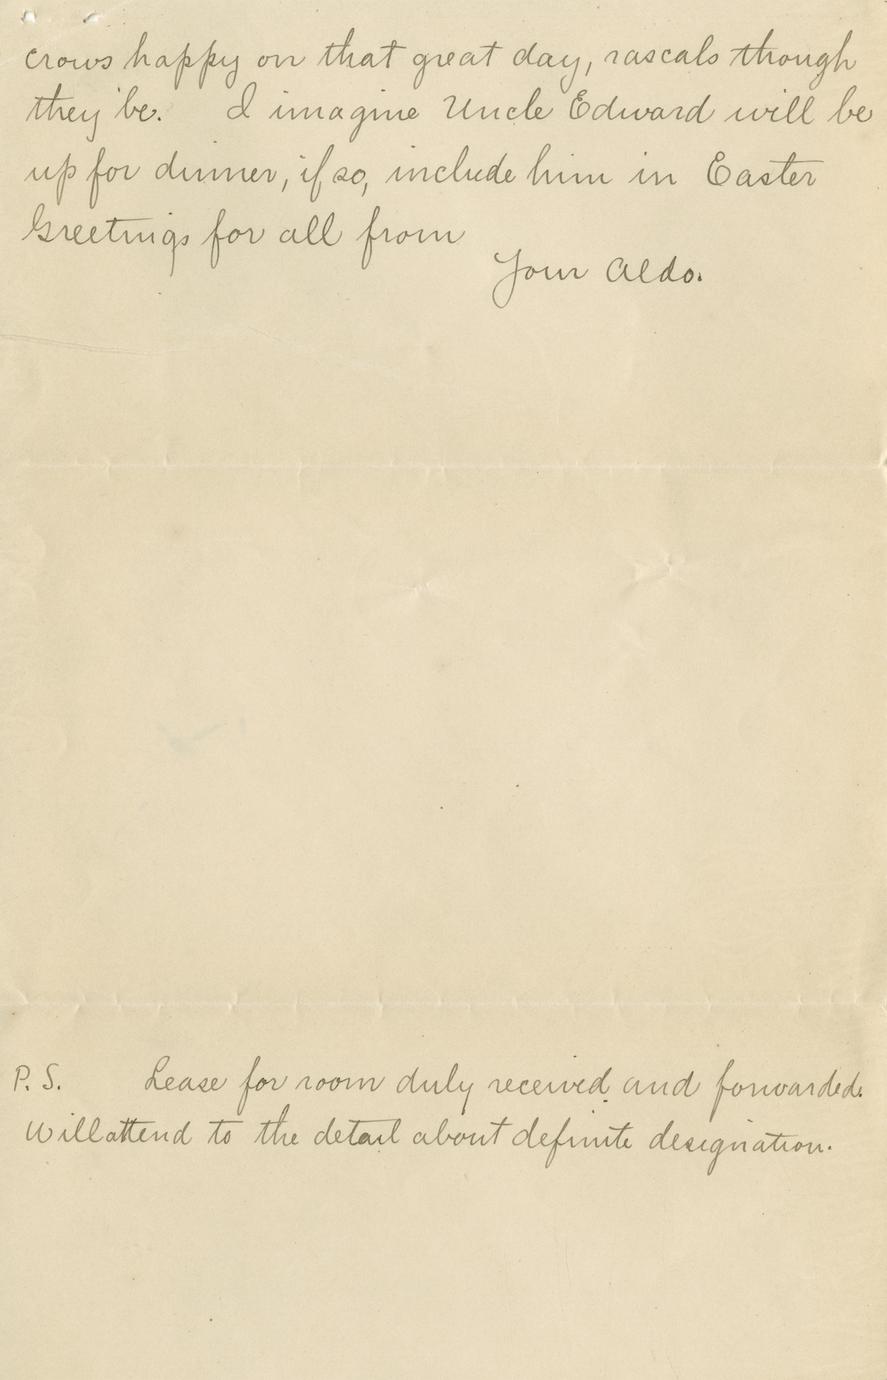 crows happy on that great day, rascals though
they be. I imagine Uncle Edward will be
up for dinner, if so, include him in Easter
Greetings for all from
Your Aldo.
P. S. Lease for room duly received and forwarded.
Will attend to the detail about definite designation.